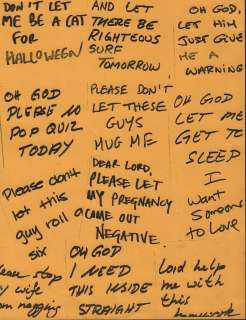 DON'T LET
ME BE A CAT
FOR
HALLOWEEN
AND LET
THERE BE
RIGHTEOUS
SURF
TOMORROW
OH GOD,
LET HIM
JUST GIVE
ME A
WARNING
OH GOD
PLEASE NO
POP QUIZ
TODAY
PLEASE DON'T
LET THESE
GUYS
MUG ME
OH GOD
LET ME
GET TO
SLEEP
Please don't
let this
guy roll a
six
DEAR LORD,
PLEASE LET
MY PREGNANCY
COME OUT
NEGATIVE.
I
Want Someone
to Love
stop
wife
nagging
OH GOD
I NEED
THIS INSIDE
STRAIGHT
Lord help
me with
this
homework